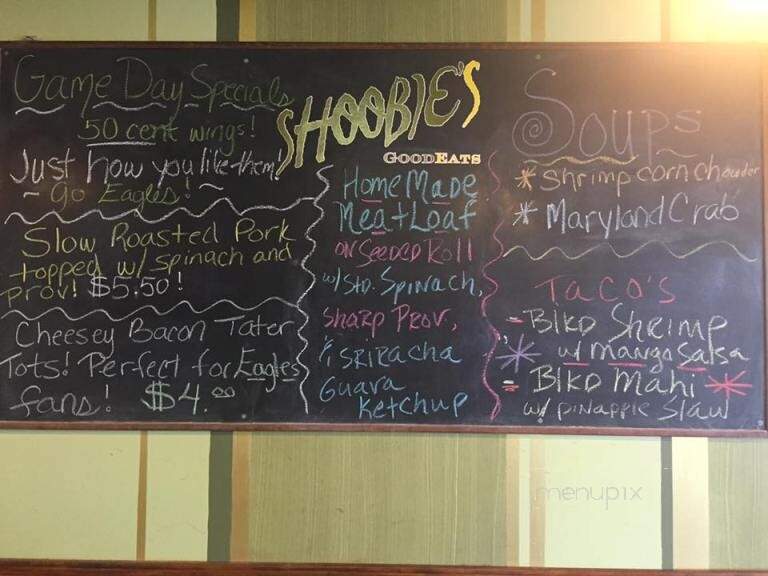 Game Day Specials
50 cent wings!
Just how you like them!
~ Go Eagles! ~
Slow Roasted Pork
topped w/ spinach and
prov! $5.50!
Cheesey Bacon Tater
Tots! Perfect for Eagles
fans! $4.00
SHOOBIE'S
GOODEATS
HomeMade
MeatLoaf
on Seeded Roll
w/ Stp. Spinach,
Sharp Prov,
& SRIRacha
Guava
Ketchup
Soups
* Shrimp corn chowder
* Maryland Crab
Taco's
- Blkd Shrimp
w/ mango Salsa
- Blkd Mahi
w/ pinapple Slaw
menupix